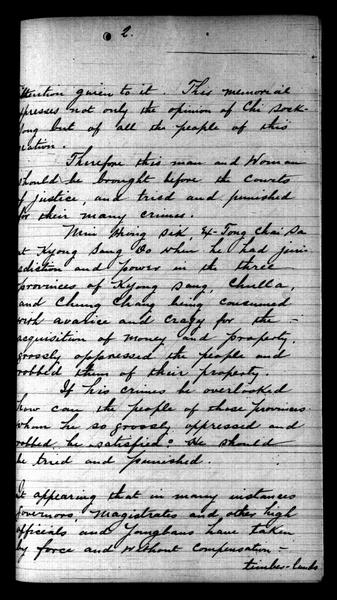 2.
attention given to it. This memorial
expresses not only the opinion of Chi Sock-
yong but of all the people of this
nation.
Therefore this man and Woman
should be brought before the Courts
of justice, and tried and punished
for their many crimes.
Min Hiong Sik, Ex-Tong Chai Sa
at Kyong Sang Do when he had juris
diction and power in the three
provinces of Kyong Sang, Chulla,
and Chung Chang being consumed
with avarice and crazy for the -
acquisition of money and property.
grossly oppressed the people and
robbed them of their property.
If his crimes be overlooked
how can the people of those provinces
whom he so grossly oppressed and
robbed be satisfied? He should
be tried and punished.
It appearing that in many instances
Governors, Magistrates and other high
officials and Yangbans have taken
by force and without compensation -
timber-lands